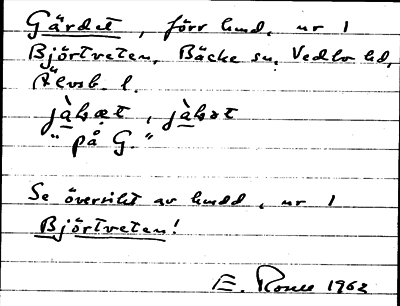 Gärdet, förr hmd. nr 1
Björtveten, Bäcke sn. Vedbo hd,
Älvsb. l.
"på G."
Se översikt av hmdd. nr 1
Björtveten!
E. 1962